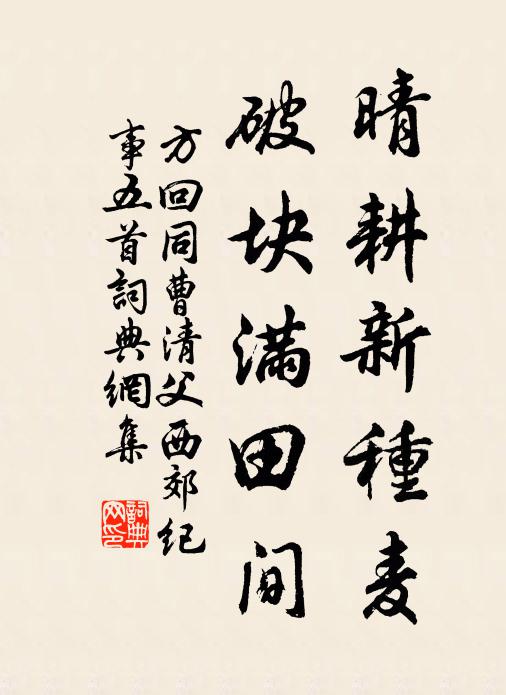 晴耕新種麦
破块满田间
方回同曹清父西郊纪
事五首詞典網集
詞典
网印